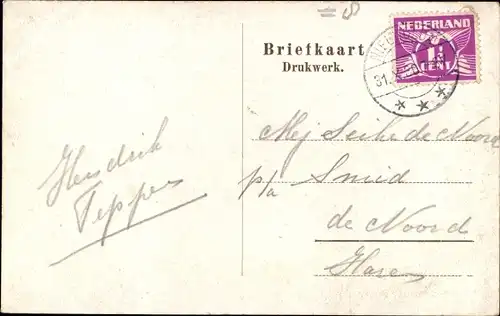 Briefkaart
Drukwerk.
NEDERLAND
1½
CENT
31.
Hendrik
Teppes
Mej Seike de Noord
p/a Smid
de Noord
Haren